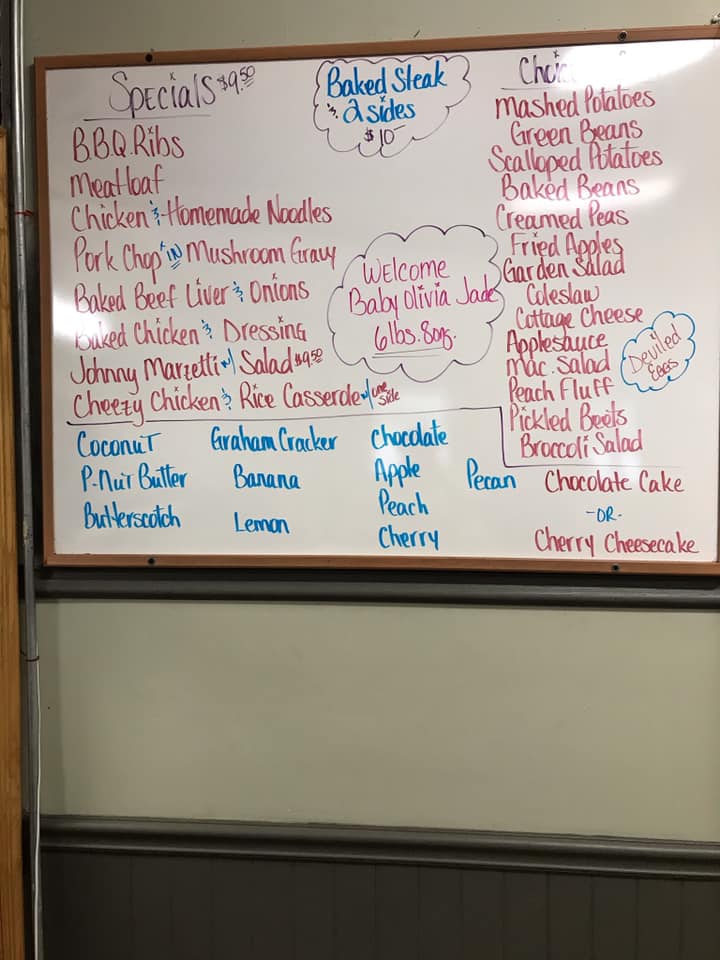 Specials $9.50
B.B.Q. Ribs
Meatloaf
Chicken & Homemade Noodles
Pork Chop IN Mushroom Gravy
Baked Beef Liver & Onions
Baked Chicken & Dressing
Johnny Marzetti w/ Salad $9.50
Cheezy Chicken & Rice Casserole w/ one side
Baked Steak
& 2 sides
$10-
Welcome
Baby Olivia Jade
6lbs. 8ozs.
Mashed Potatoes
Green Beans
Scalloped Potatoes
Baked Beans
Creamed Peas
Fried Apples
Garden Salad
Coleslaw
Cottage Cheese
Applesauce
Mac. Salad
Peach Fluff
Pickled Beets
Broccoli Salad
Deviled
Eggs
Coconut
P-Nut Butter
Butterscotch
Graham Cracker
Banana
Lemon
Chocolate
Apple
Peach
Cherry
Pecan
Chocolate Cake
-OR-
Cherry Cheesecake